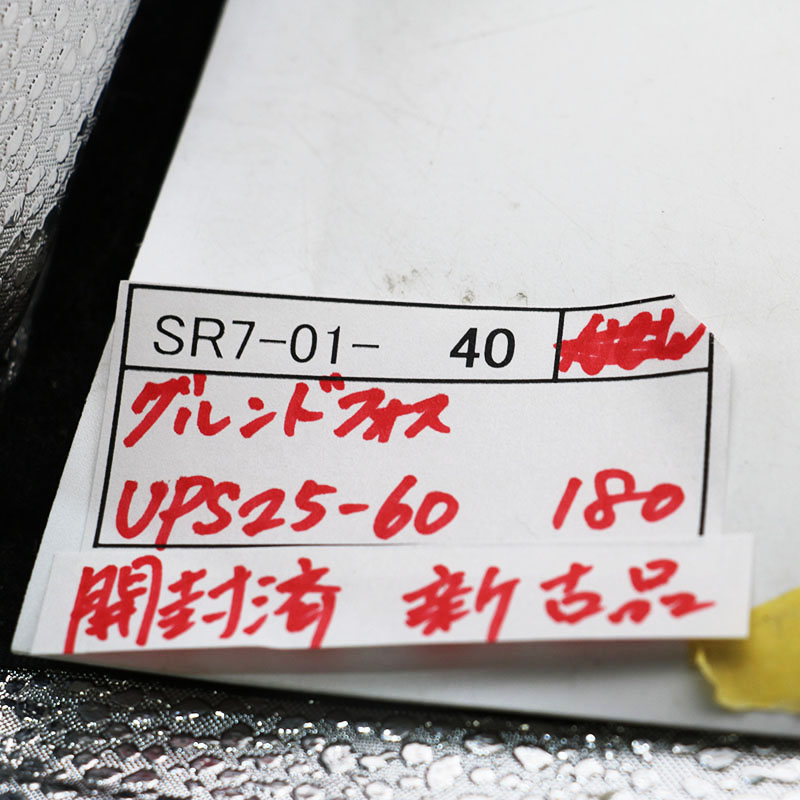 SR7-01- 40
グルンドフォス
UPS25-60 180
開封済 新古品